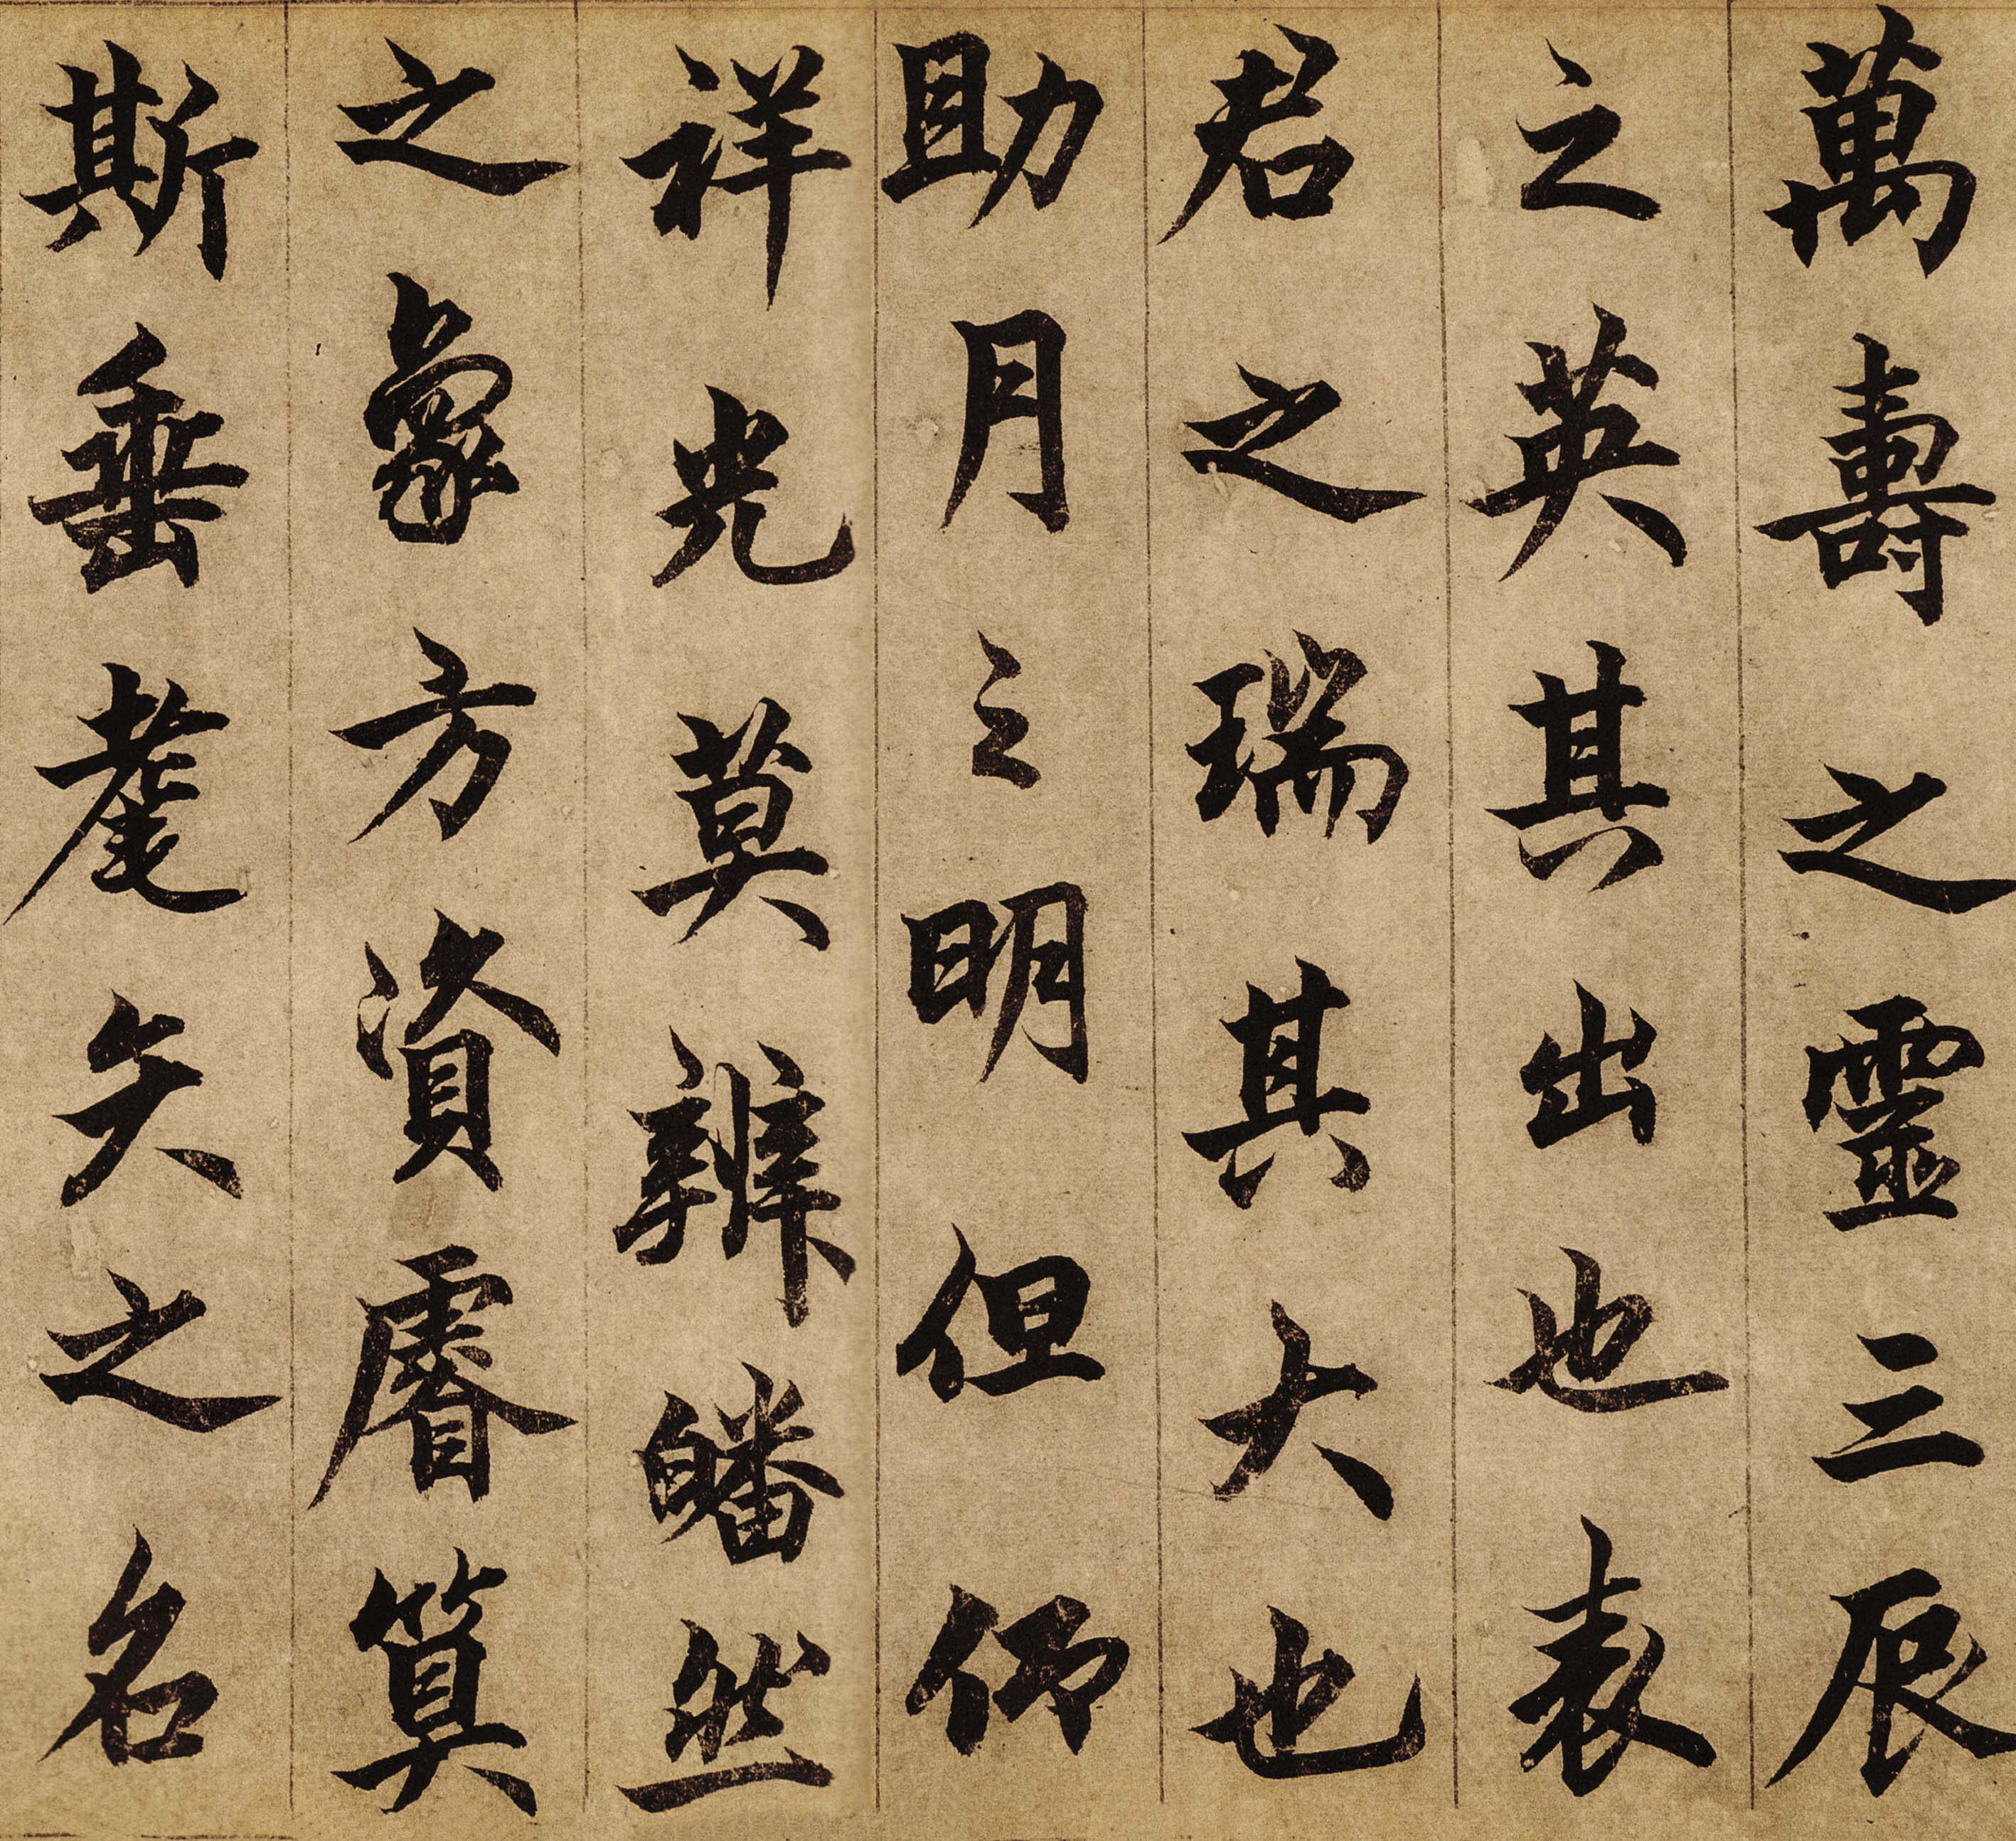 萬壽之靈三辰
之英其出也表
君之瑞其大也
助月之明但仰
祥光莫辨皤然
之象方資睿算
斯垂耄矣之名